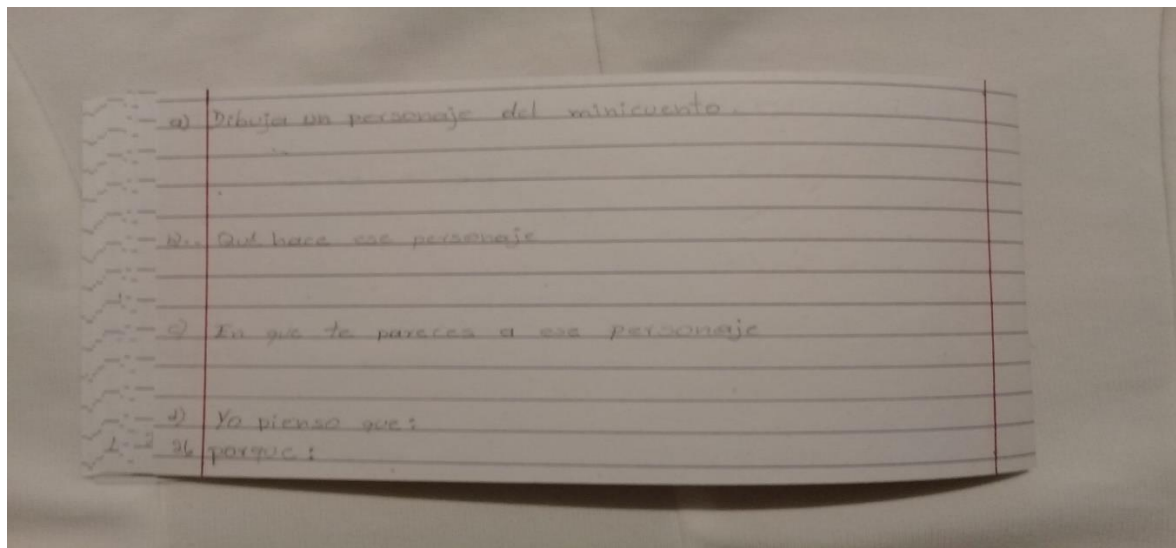 a) Dibuja un personaje del minicuento.
b.. Qué hace ese personaje
c) En que te pareces a ese personaje
d) Yo pienso que:
porque: